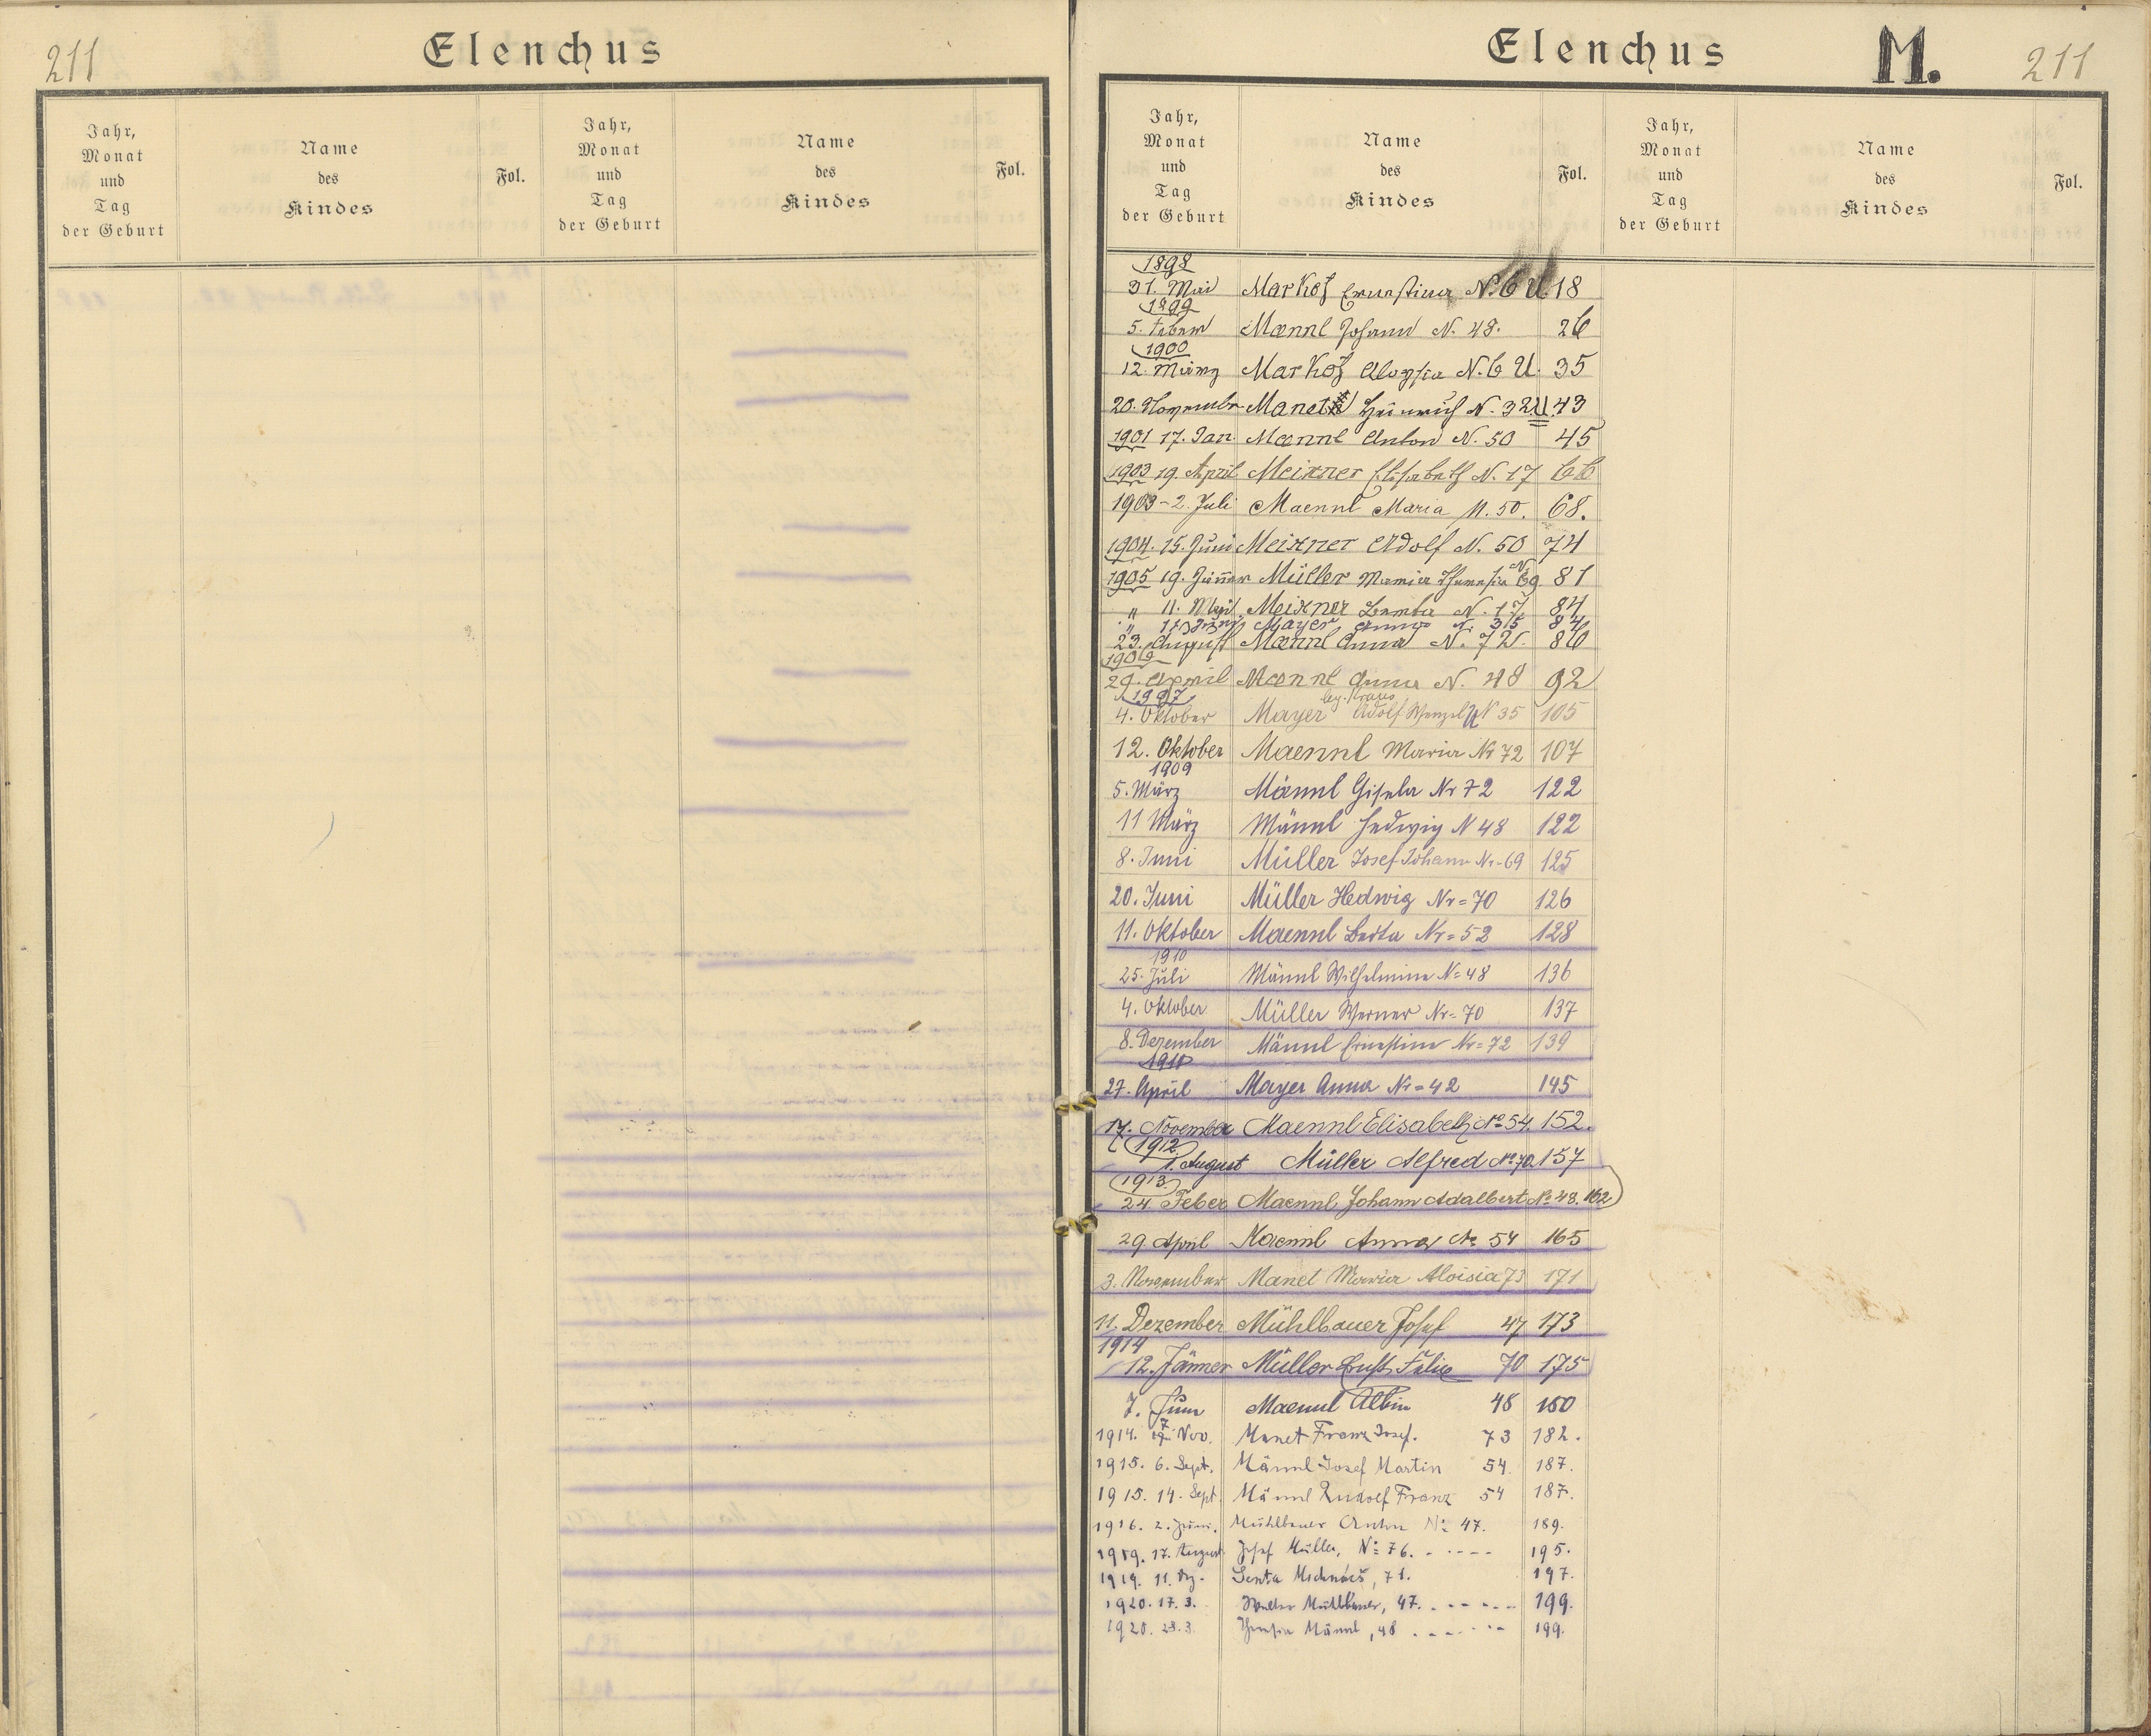 211
Elenchus
Jahr,
Monat
und
Tag
der Geburt
Name
des
Kindes
Fol.
Jahr,
Monat
und
Tag
der Geburt
Name
des
Kindes
Fol.
Elenchus M. 211
Jahr,
Monat
und
Tag
der Geburt
Name
des
Kindes
Fol.
Jahr,
Monat
und
Tag
der Geburt
Name
des
Kindes
Fol.
1898
31. Mai Markof Ernestina N. 6 U. 18
1899
5. Maennl Johann N. 48. 26
1900
12. März Markof Aloysia N. 6 U. 35
20. November Manet Heinrich N. 32 U. 43
1901 17. Jan. Maennl Anton N. 50 45
1903 19. April Meixner Elisabeth N. 17 66
1903 - 2. Juli Maennl Maria N. 50. 68.
1904. 15. Juni Meixner Adolf N. 50 74
1905 19. Jänner Müller Maria Theresia N. 69 81
" 11. Mai Meixner Berta N. 17 84
" Mayer Anna N. 35 84
23. August Maennl Anna N. 72. 86
1906
29. April Maennl Anna N. 48 92
1907
leg. Kraus
4. Oktober Mayer Adolf Wenzel N 35 105
12. Oktober Maennl Maria Nr 72 107
1909
5. März Männl Gisela Nr 72 122
11 März Männl Hedwig N 48 122
8. Juni Müller Josef Johann Nr-69 125
20. Juni Müller Hedwig Nr=70 126
11. Oktober Maennl Berta Nr=52 128
1910
25. Juli Männl Wilhelmine N=48 136
4. Oktober Müller Werner Nr=70 137
8. Dezember Männl Ernestine Nr=72 139
1911
27. April Mayer Anna Nr=42 145
17. November Maennl Elisabeth No 54. 152.
1912
1. August Müller Alfred No 70. 157
1913
24. Feber Maennl Johann Adalbert No 48. 162
29. April Maennl Anna No 54 165
3. November Manet Maria Aloisia 73 171
11. Dezember Mühlbauer Josef 47 173
1914
12. Jänner Müller Ernst Felix 70 175
7. Juni Maennl Albin 48 180
1914. 7 Nov. Manet Franz Josef. 73 182.
1915. 6. Sept. Männl Josef Martin 54. 187.
1915. 14. Sept. Männl Rudolf Franz 54 187.
1916. 2. Mühlbauer Anton No 47. 189.
1919. 17. August Josef Müller, No 76. - - - - - 195.
1919. 11. Dz. Senta 71. 197.
1920. 17. 3. Walter Mühlbauer, 47. - - - - - 199.
1920. 23. 3. Theresia Männl, 48 . - - - - - 199.